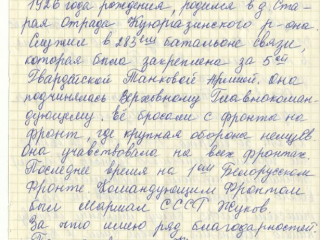 1926 года рождения, родился в д. Ста-
рая отрада Куюргазинского р-она.
Служил в 283ем батальоне связи,
которая была закреплена за 5ой
Гвардейской Танковой Армией. Она
подчинялась Верховному Главнокоман-
дующему. Её бросали с фронта на
фронт, где крупная оборона немцев
Она учавствовала на всех фронтах.
Последнее время на 1ом Белорусском
Фронте Командующим Фронтом
был Маршал СССР Жуков.
За что имею ряд благодарностей.